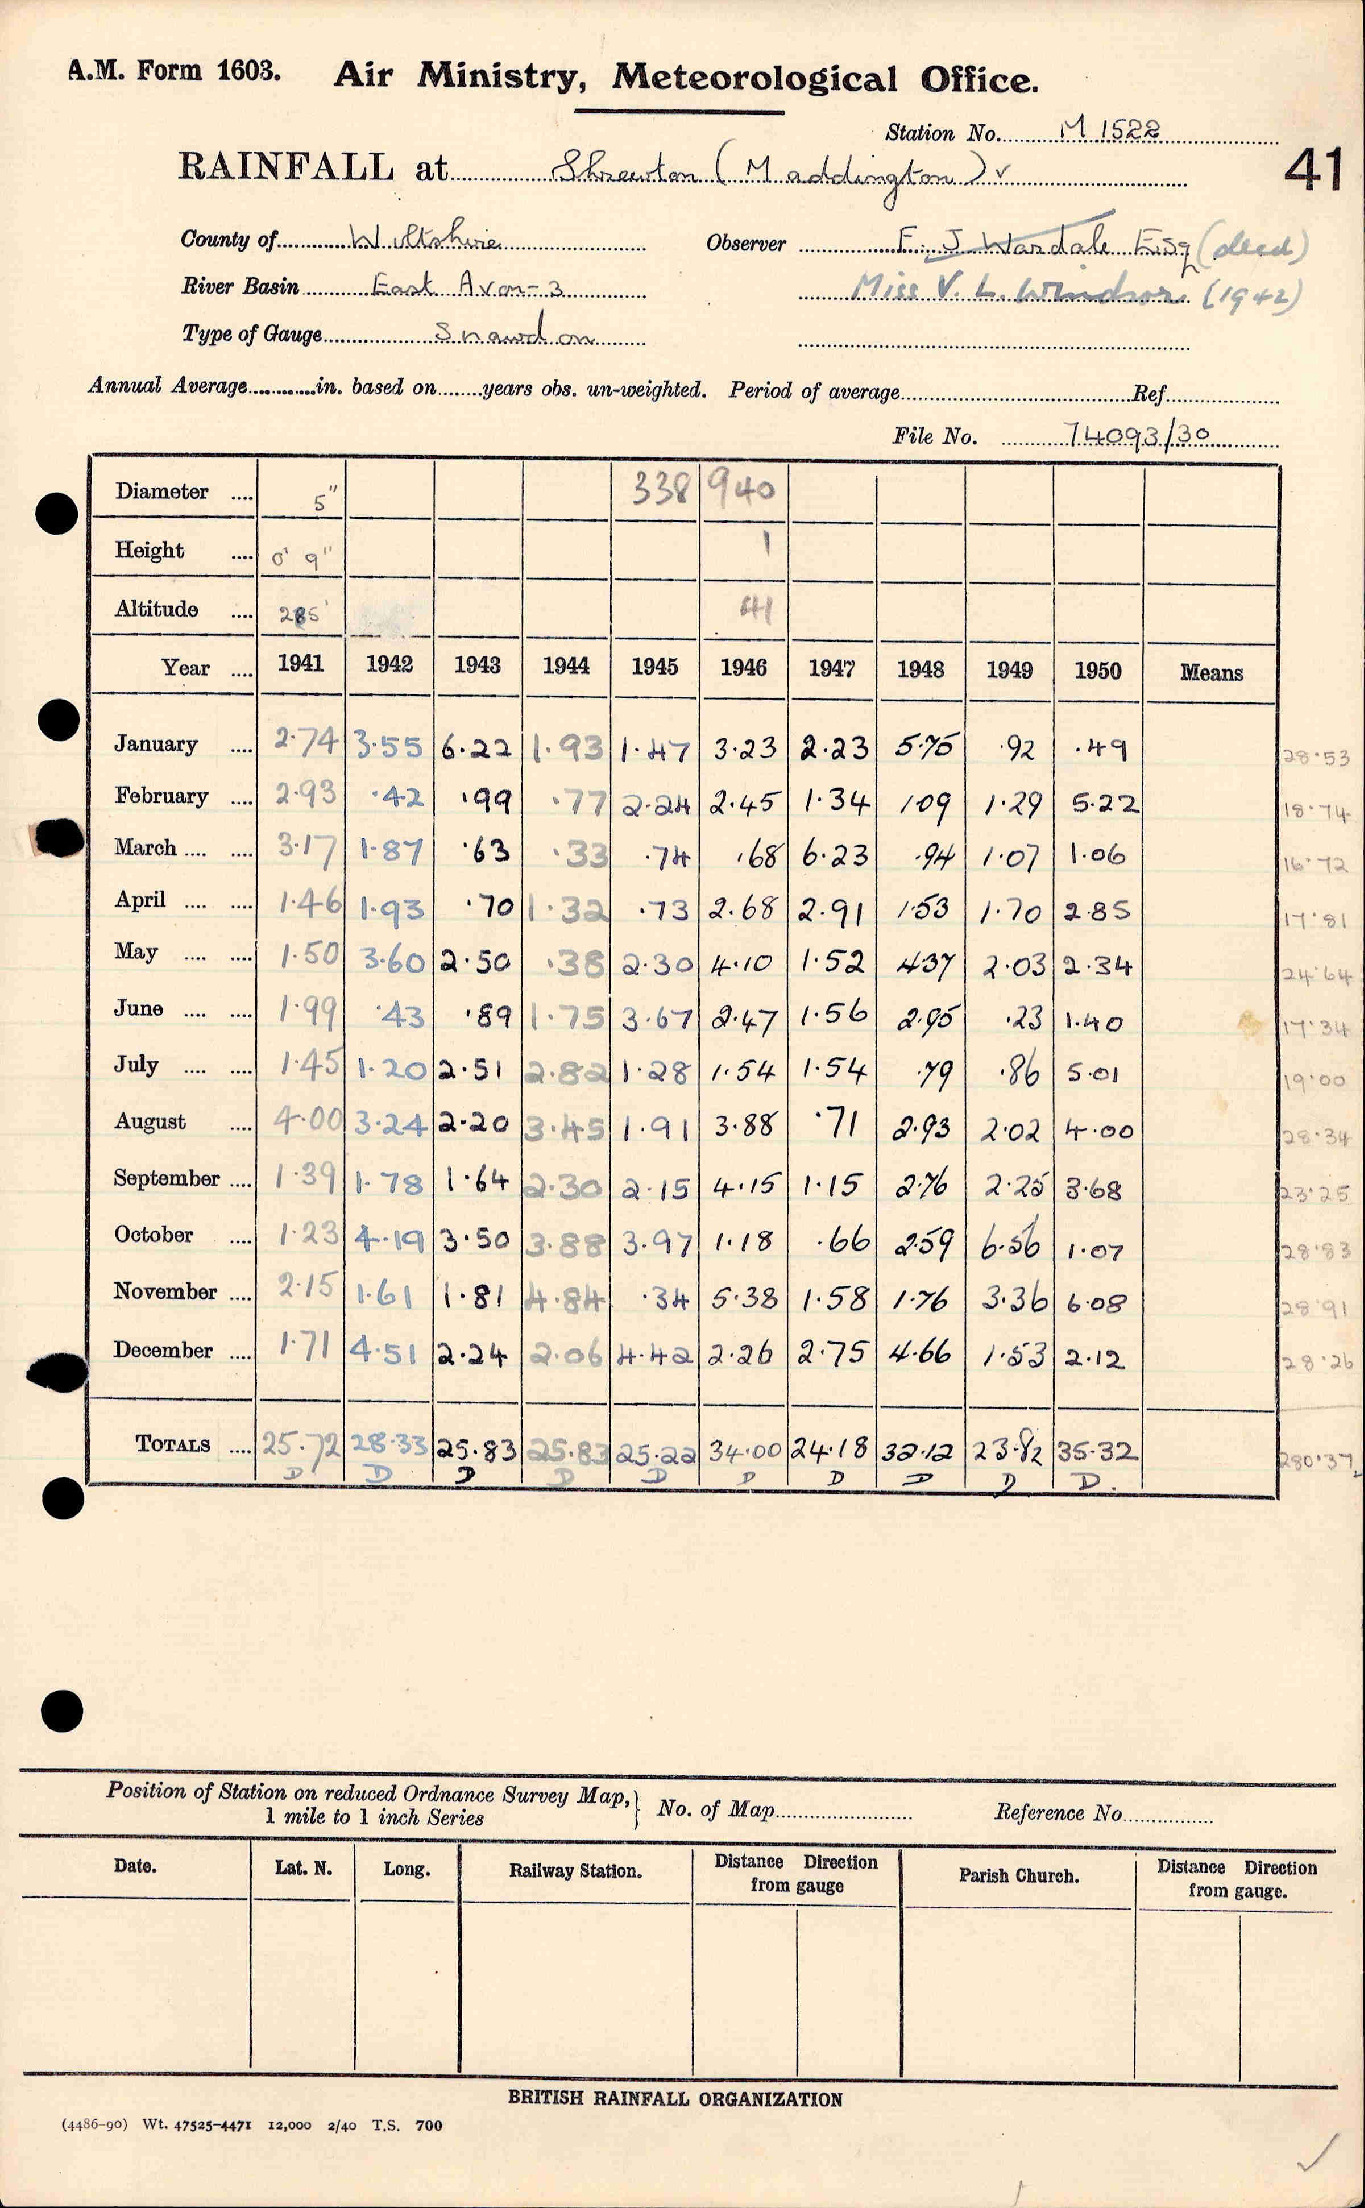 A.M. Form 1603. Air Ministry, Meteorological Office.
Station No. M 1522
RAINFALL at Shrewton (Maddington) ✓ 41
County of Wiltshire Observer F. J Wardale Esq (dead)
River Basin East Avon-3 Miss V. L. Windsor (1942)
Type of Gauge Snowdon
Annual Average............in. based on........years obs. un-weighted. Period of average............Ref............
File No. 74093/30
Diameter .... 5" 338 940
Height .... 0' 9" 1
Altitude .... 285' 41
Year .... 1941 1942 1943 1944 1945 1946 1947 1948 1949 1950 Means
January .... 2.74 3.55 6.22 1.93 1.47 3.23 2.23 5.75 .92 .49 28.53
February .... 2.93 .42 .99 .77 2.24 2.45 1.34 1.09 1.29 5.22 18.74
March .... .... 3.17 1.87 .63 .33 .74 .68 6.23 .94 1.07 1.06 16.72
April .... .... 1.46 1.93 .70 1.32 .73 2.68 2.91 1.53 1.70 2.85 17.81
May .... .... 1.50 3.60 2.50 .38 2.30 4.10 1.52 4.37 2.03 2.34 24.64
June .... .... 1.99 .43 .89 1.75 3.67 2.47 1.56 2.95 .23 1.40 17.34
July .... .... 1.45 1.20 2.51 2.82 1.28 1.54 1.54 .79 .86 5.01 19.00
August .... 4.00 3.24 2.20 3.45 1.91 3.88 .71 2.93 2.02 4.00 28.34
September .... 1.39 1.78 1.64 2.30 2.15 4.15 1.15 2.76 2.25 3.68 23.25
October .... 1.23 4.19 3.50 3.88 3.97 1.18 .66 2.59 6.56 1.07 28.83
November .... 2.15 1.61 1.81 4.84 .34 5.38 1.58 1.76 3.36 6.08 28.91
December .... 1.71 4.51 2.24 2.06 4.42 2.26 2.75 4.66 1.53 2.12 28.26
TOTALS .... 25.72 28.33 25.83 25.83 25.22 34.00 24.18 32.12 23.82 35.32 280.37
D D D D D D D D D D.
Position of Station on reduced Ordnance Survey Map, 1 mile to 1 inch Series } No. of Map............ Reference No............
Date. Lat. N. Long. Railway Station. Distance Direction from gauge Parish Church. Distance Direction from gauge.
BRITISH RAINFALL ORGANIZATION
(4486-90) Wt. 47525-4471 12,000 2/40 T.S. 700
✓